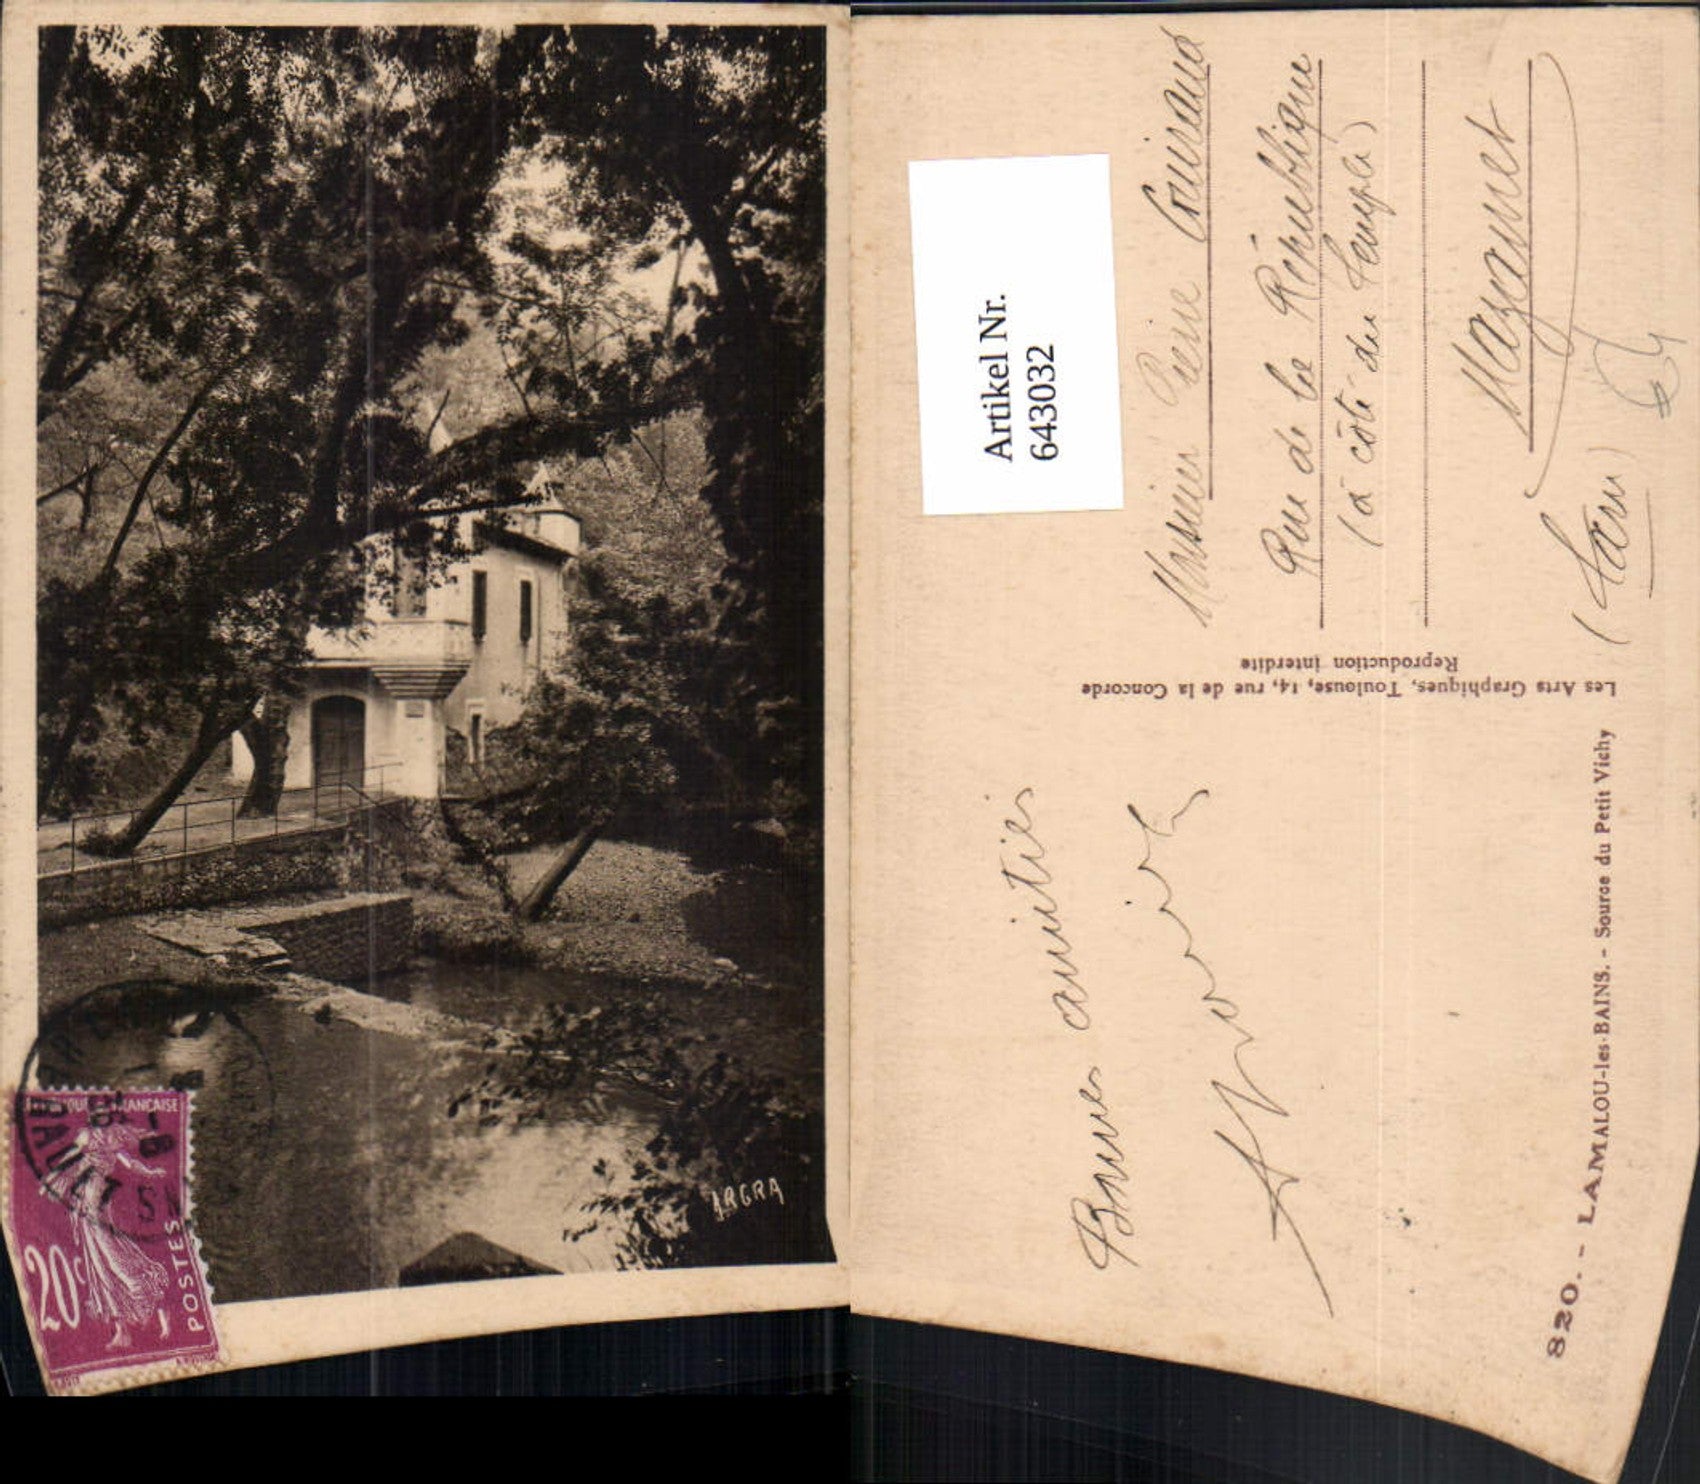 RÉPUBLIQUE FRANÇAISE
20c
POSTES
HERAULT
ARGRA
Artikel Nr.
643032
Monsieur Pierre
Rue de la République
(à côté du temple)
Mazamet
(Tarn)
Les Arts Graphiques, Toulouse, 14, rue de la Concorde
Reproduction interdite
Bonnes amitiés
820. - LAMALOU-les-BAINS. - Source du Petit Vichy